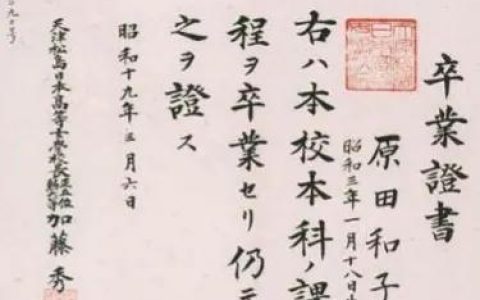 卒業證書
原田和子
昭和三年一月十八日
右ハ本校本科ノ課
程ヲ卒業セリ仍テ
之ヲ證ス
昭和十九年三月六日
天津松島日本高等女學校長
加藤秀